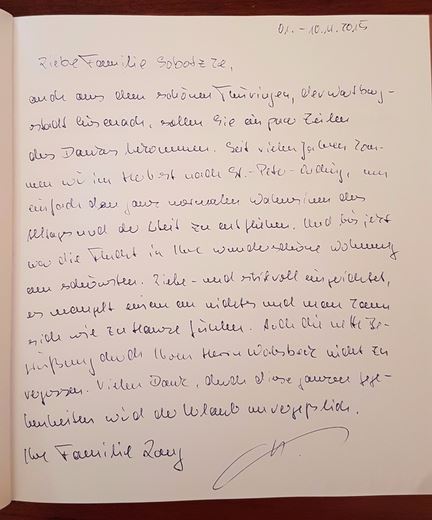 01. - 10.11.2015
Liebe Familie
auch aus dem schönen Thüringen, der Wartburg-
stadt Eisenach, sollen Sie ein paar Zeilen
des Dankes bekommen. Seit vielen Jahren kom-
men wir im Herbst nach St.-Peter-Ording, um
einfach dem ganz normalen Wahnsinn des
Alltages und der Arbeit zu entfliehen. Und bis jetzt
war die Flucht in Ihre wunderschöne Wohnung
am schönsten. Liebe- und stilvoll eingerichtet,
es mangelt einem an nichts und man kann
sich wie zu Hause fühlen. Auch die nette Be-
grüßung durch Ihren Herrn nicht zu
vergessen. Vielen Dank, durch diese ganzen Gege-
benheiten wird der Urlaub unvergeßlich.
Ihre Familie